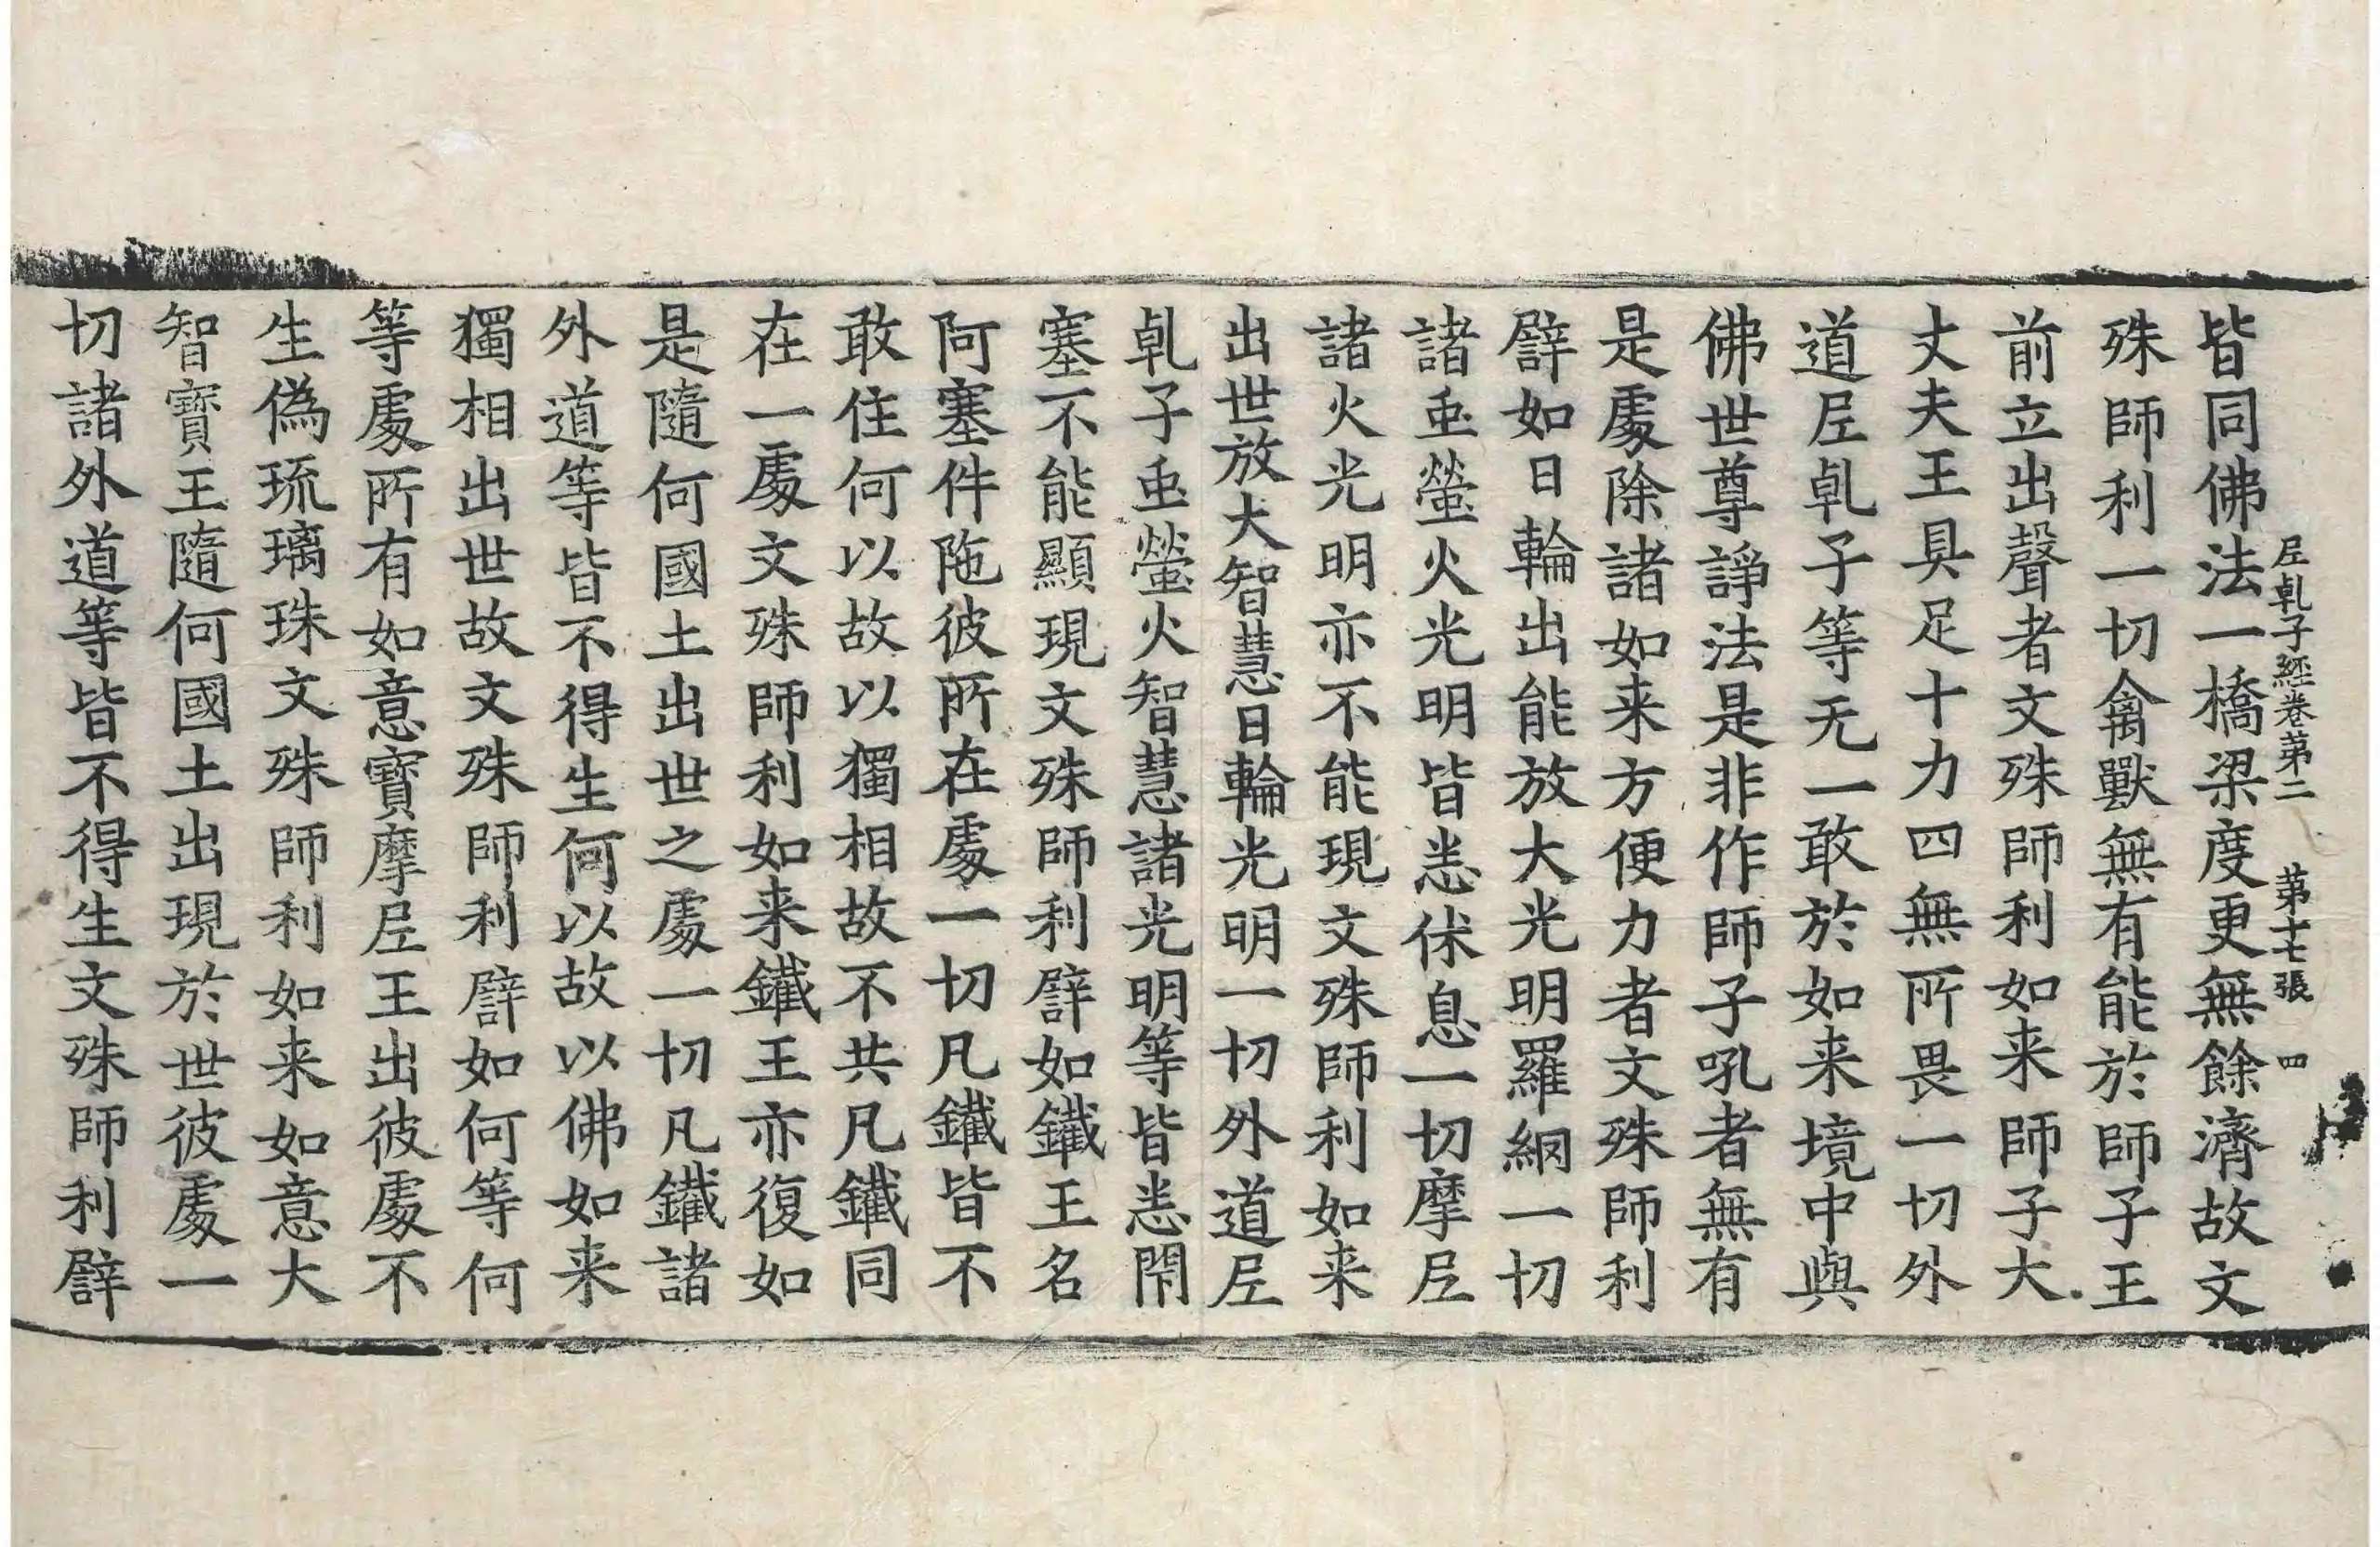 尼乹子經卷第二　第十七張　四
皆同佛法一橋梁度更無餘濟故文
殊師利一切禽獸無有能於師子王
前立出聲者文殊師利如来師子大
丈夫王具足十力四無所畏一切外
道尼乹子等无一敢於如来境中與
佛世尊諍法是非作師子吼者無有
是處除諸如来方便力者文殊師利
譬如日輪出能放大光明羅網一切
諸䖝螢火光明皆悉伏息一切摩尼
諸火光明亦不能現文殊師利如来
出世放大智慧日輪光明一切外道尼
乹子䖝螢火智慧諸光明等皆悉閇
塞不能顯現文殊師利譬如鐵王名
阿塞件陁彼所在處一切凡鐵皆不
敢住何以故以獨相故不共凡鐵同
在一處文殊師利如来鐵王亦復如
是隨何國土出世之處一切凡鐵諸
外道等皆不得生何以故以佛如来
獨相出世故文殊師利譬如何等何
等處所有如意寶摩尼王出彼處不
生偽琉璃珠文殊師利如来如意大
智寶王隨何國土出現於世彼處一
切諸外道等皆不得生文殊師利譬